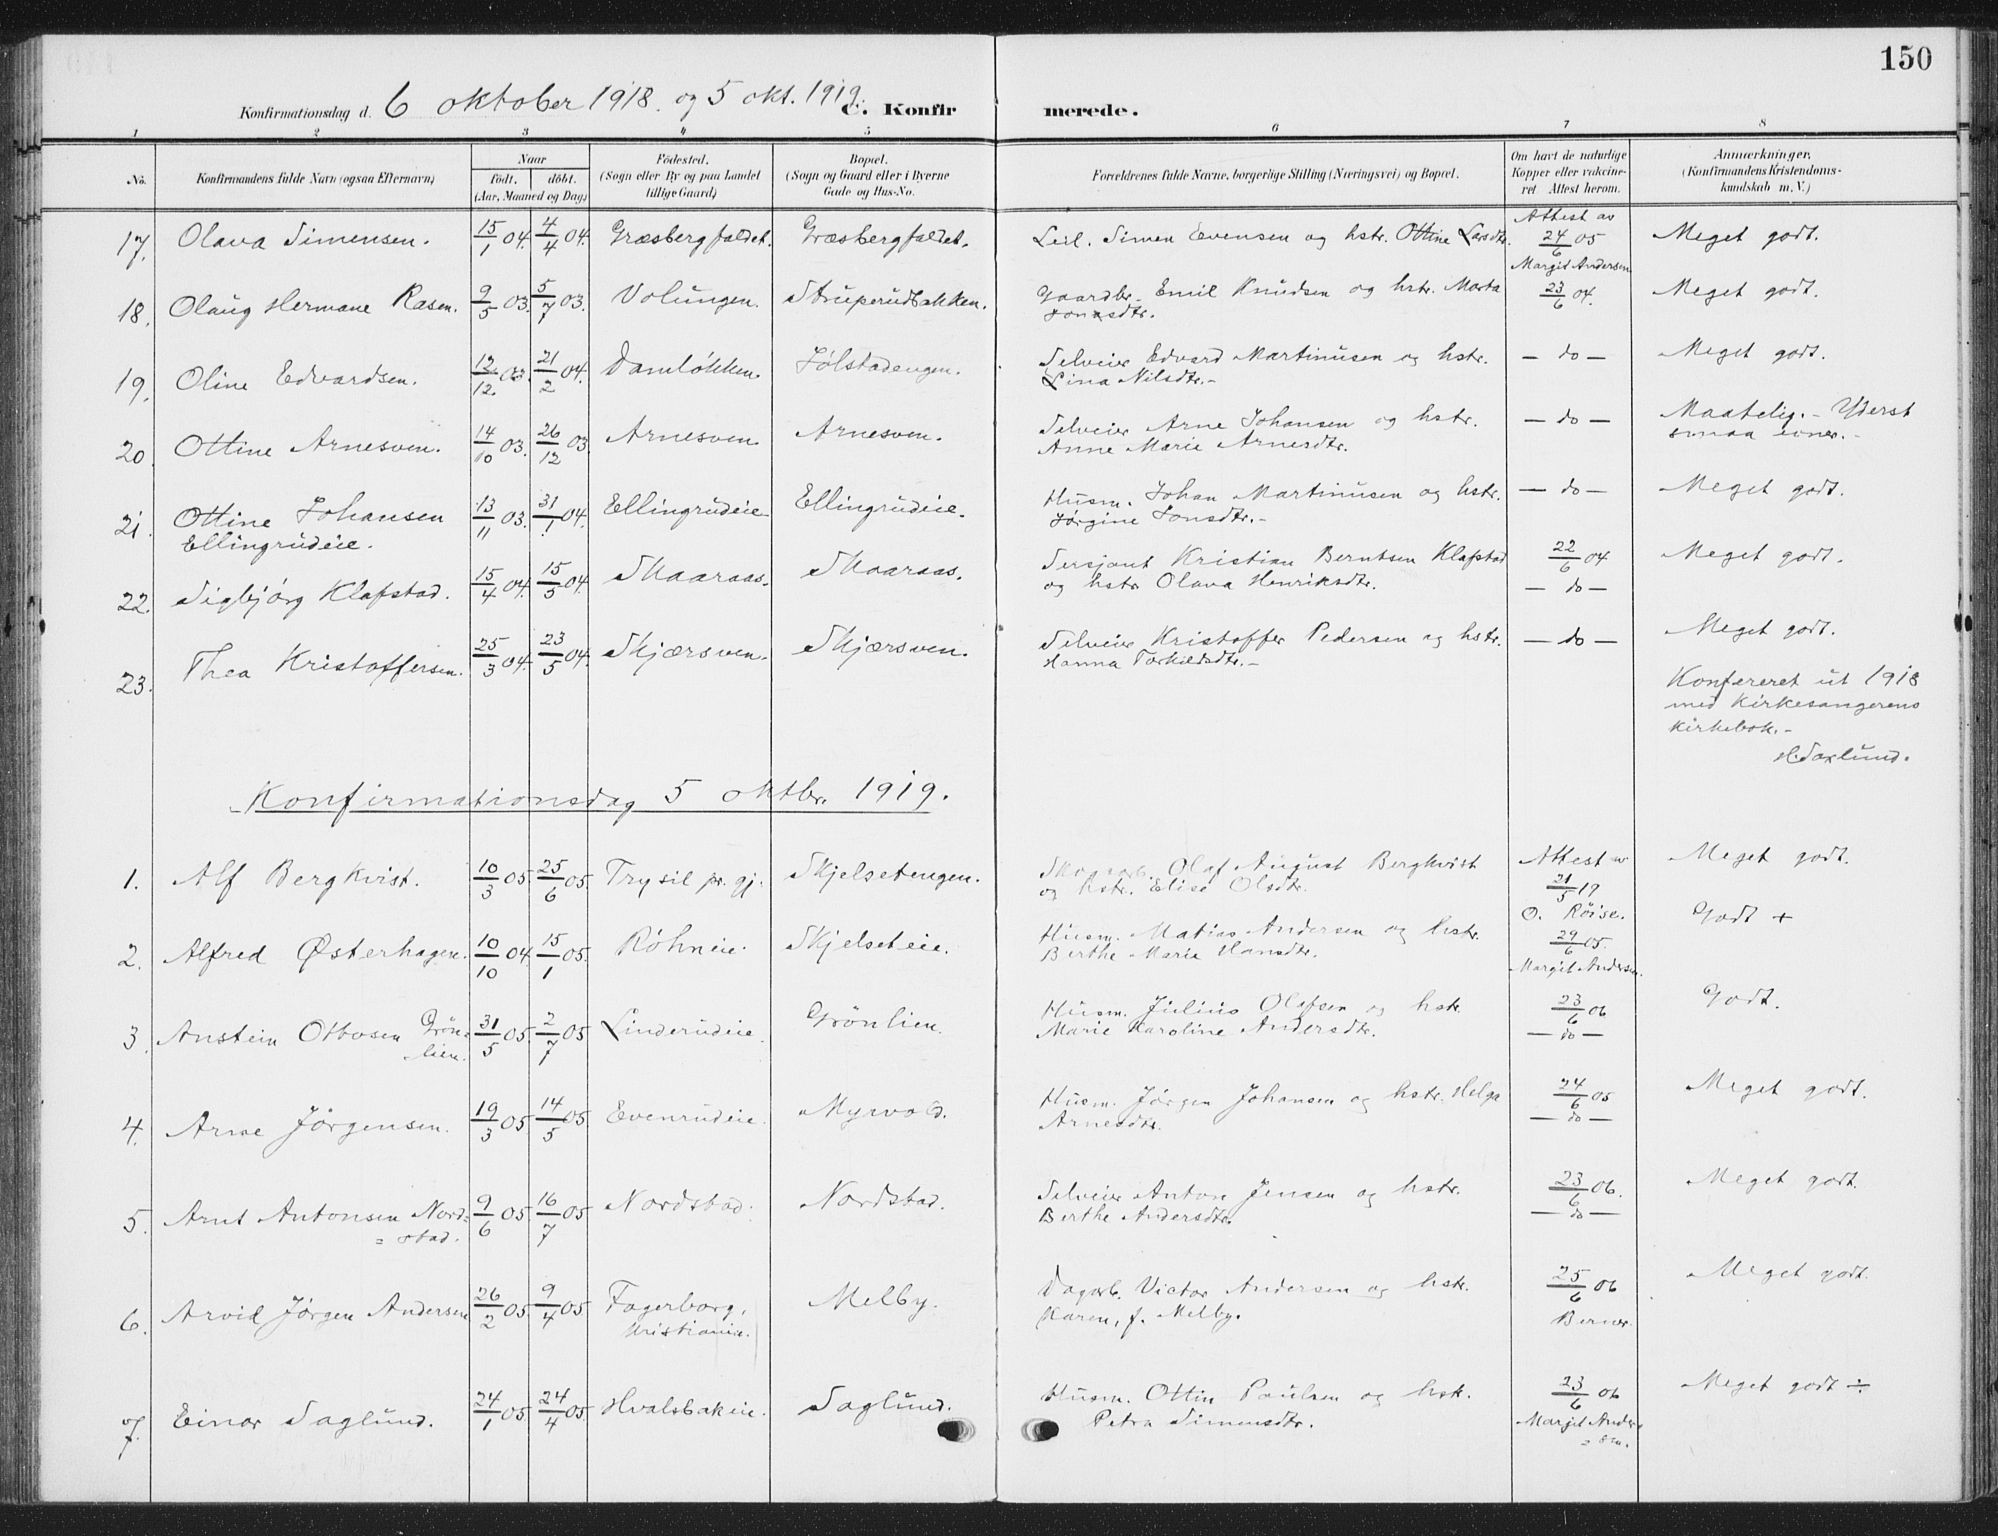 150
Konfirmationsdag d. 6 oktober 1918. og 5 okt. 1919. C. Konfirmerede.
1 2 3 4 5 6 7 8
No. Konfirmandens fulde Navn (ogsaa Efternavn) Naar født, døbt. (Aar, Maaned og Dag) Fødested. (Sogn eller By og paa Landet tillige Gaard) Bopæl. (Sogn og Gaard eller i Byerne Gade og Hus-No. Forældrenes fulde Navne, borgerlige Stilling (Næringsvei) og Bopæl. Om havt de naturlige Kopper eller vaccineret Attest herom. Anmærkninger, (Konfirmandens Kristendomskundskab m. V.)
17. Olava Simensen. 15/1 04. 4/4 04. Græsbergfaldet. Græsbergfaldet. Leil. Simen Evensen og hstr. Ottine Larsdtr. Attest av 24/6 05 Margit Andersen Meget godt.
18. Olaug Hermane Rasen. 9/5 03. 5/7 03. Volungen. Struperudbakken. Gaardbr. Emil Knudsen og hstr. Marta
Jonasdtr. 23/6 04. Meget godt.
19. Oline Edvardsen. 12/12 03. 21/2 04. Damløkken. Jølstadengen. Selveier Edvard Martinusen og hstr.
Lina Nilsdtr.- — do — Meget godt.
20. Ottine Arnesven. 14/10 03. 26/12 03. Arnesven. Arnesven. Selveier Arne Johansen og hstr.
Anne Marie Arnesdtr. — do — Maatelig. - Yderst
smaa evner.-
21. Ottine Johansen
Ellingrudeie. 13/11 03. 31/1 04. Ellingrudeie. Ellingrudeie. Husm. Johan Martinusen og hstr.
Jørgine Jonsdtr.- — do — Meget godt.
22. Sigbjørg Klafstad. 15/4 04. 15/5 04. Skaaraas. Skaaraas. Sersjant Kristian Berntsen Klafstad
og hstr Olava Henriksdtr. 22/6 04 — do — Meget godt.
23. Thea Kristoffersen. 25/3 04. 23/5 04. Skjærsven. Skjærsven. Selveier Kristoffer Pedersen og hstr.
Hanna Torkildsdtr.- — do — Meget godt.
Konfereret ut 1918
med Kirkesangerens
Kirkebok.-
H. Saxlund.
Konfirmationsdag 5 oktbr. 1919.
1. Alf Bergkvist. 10/3 05. 25/6 05. Trysil pr. gj. Skjelsetengen. Skogarb. Olaf August Bergkvist
og hstr. Elise Olsdtr. Attest av 21/5 19 O. Røise. Meget godt.
2. Alfred Østerhagen. 10/10 04. 15/1 05. Røhneie. Skjelseteie. Husm. Matias Andersen og hstr.
Berthe Marie Hansdtr. 29/6 05. Margit Andersen. Godt +
3. Anstein Otbosen Grön-
lien. 31/5 05. 2/7 05 Linderudeie. Grönlien. Husm. Julius Olafsen og hstr
Marie Karoline Andersdtr. 23/6 06 — do — Godt.
4. Arne Jørgensen. 19/3 05. 14/5 05. Evenrudeie. Myrvold. Husm. Jørgen Johansen og hstr. Helga
Arnesdtr. 24/6 05 — do — Meget godt.
5. Arnt Antonsen Nord=
= stad. 9/6 05. 16/7 05 Nordstad. Nordstad. Selveier Anton Jensen og hstr.
Berthe Andersdtr. 23/6 06. — do — Meget godt.
6. Arvid Jørgen Andersen 26/2 05. 9/4 05. Fagerborg,
Kristiania. Melby. Dagarb. Victor Andersen og hstr.
Karen, f. Melby. 25/6 06 Berner. Meget godt.
7. Einar Saglund. 24/1 05. 24/4 05. Hvalsbakeie. Saglund. Husm. Ottin Paulsen og hstr.
Petra Simensdtr. 23/6 06 Margit Ander=
= sen. Meget godt ÷